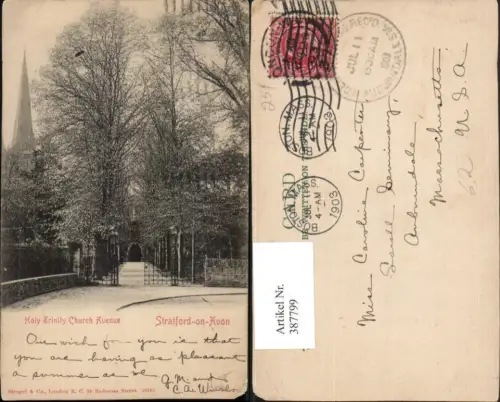 Holy Trinity Church Avenue
Stratford-on-Avon
Our wish for you is that
you are having as pleasant
a summer as we
G.M. and
C.A.
Stengel & Co., London E. C. 39 Redcross Street.
Miss Caroline Carpenter
Lasell Seminary,
Auburndale,
Massachusetts
U. S. A.
REC'D
JUL 11
1903
4-AM
1903
4-AM
1903
BOSTON
CARD
Artikel Nr.
387799
62